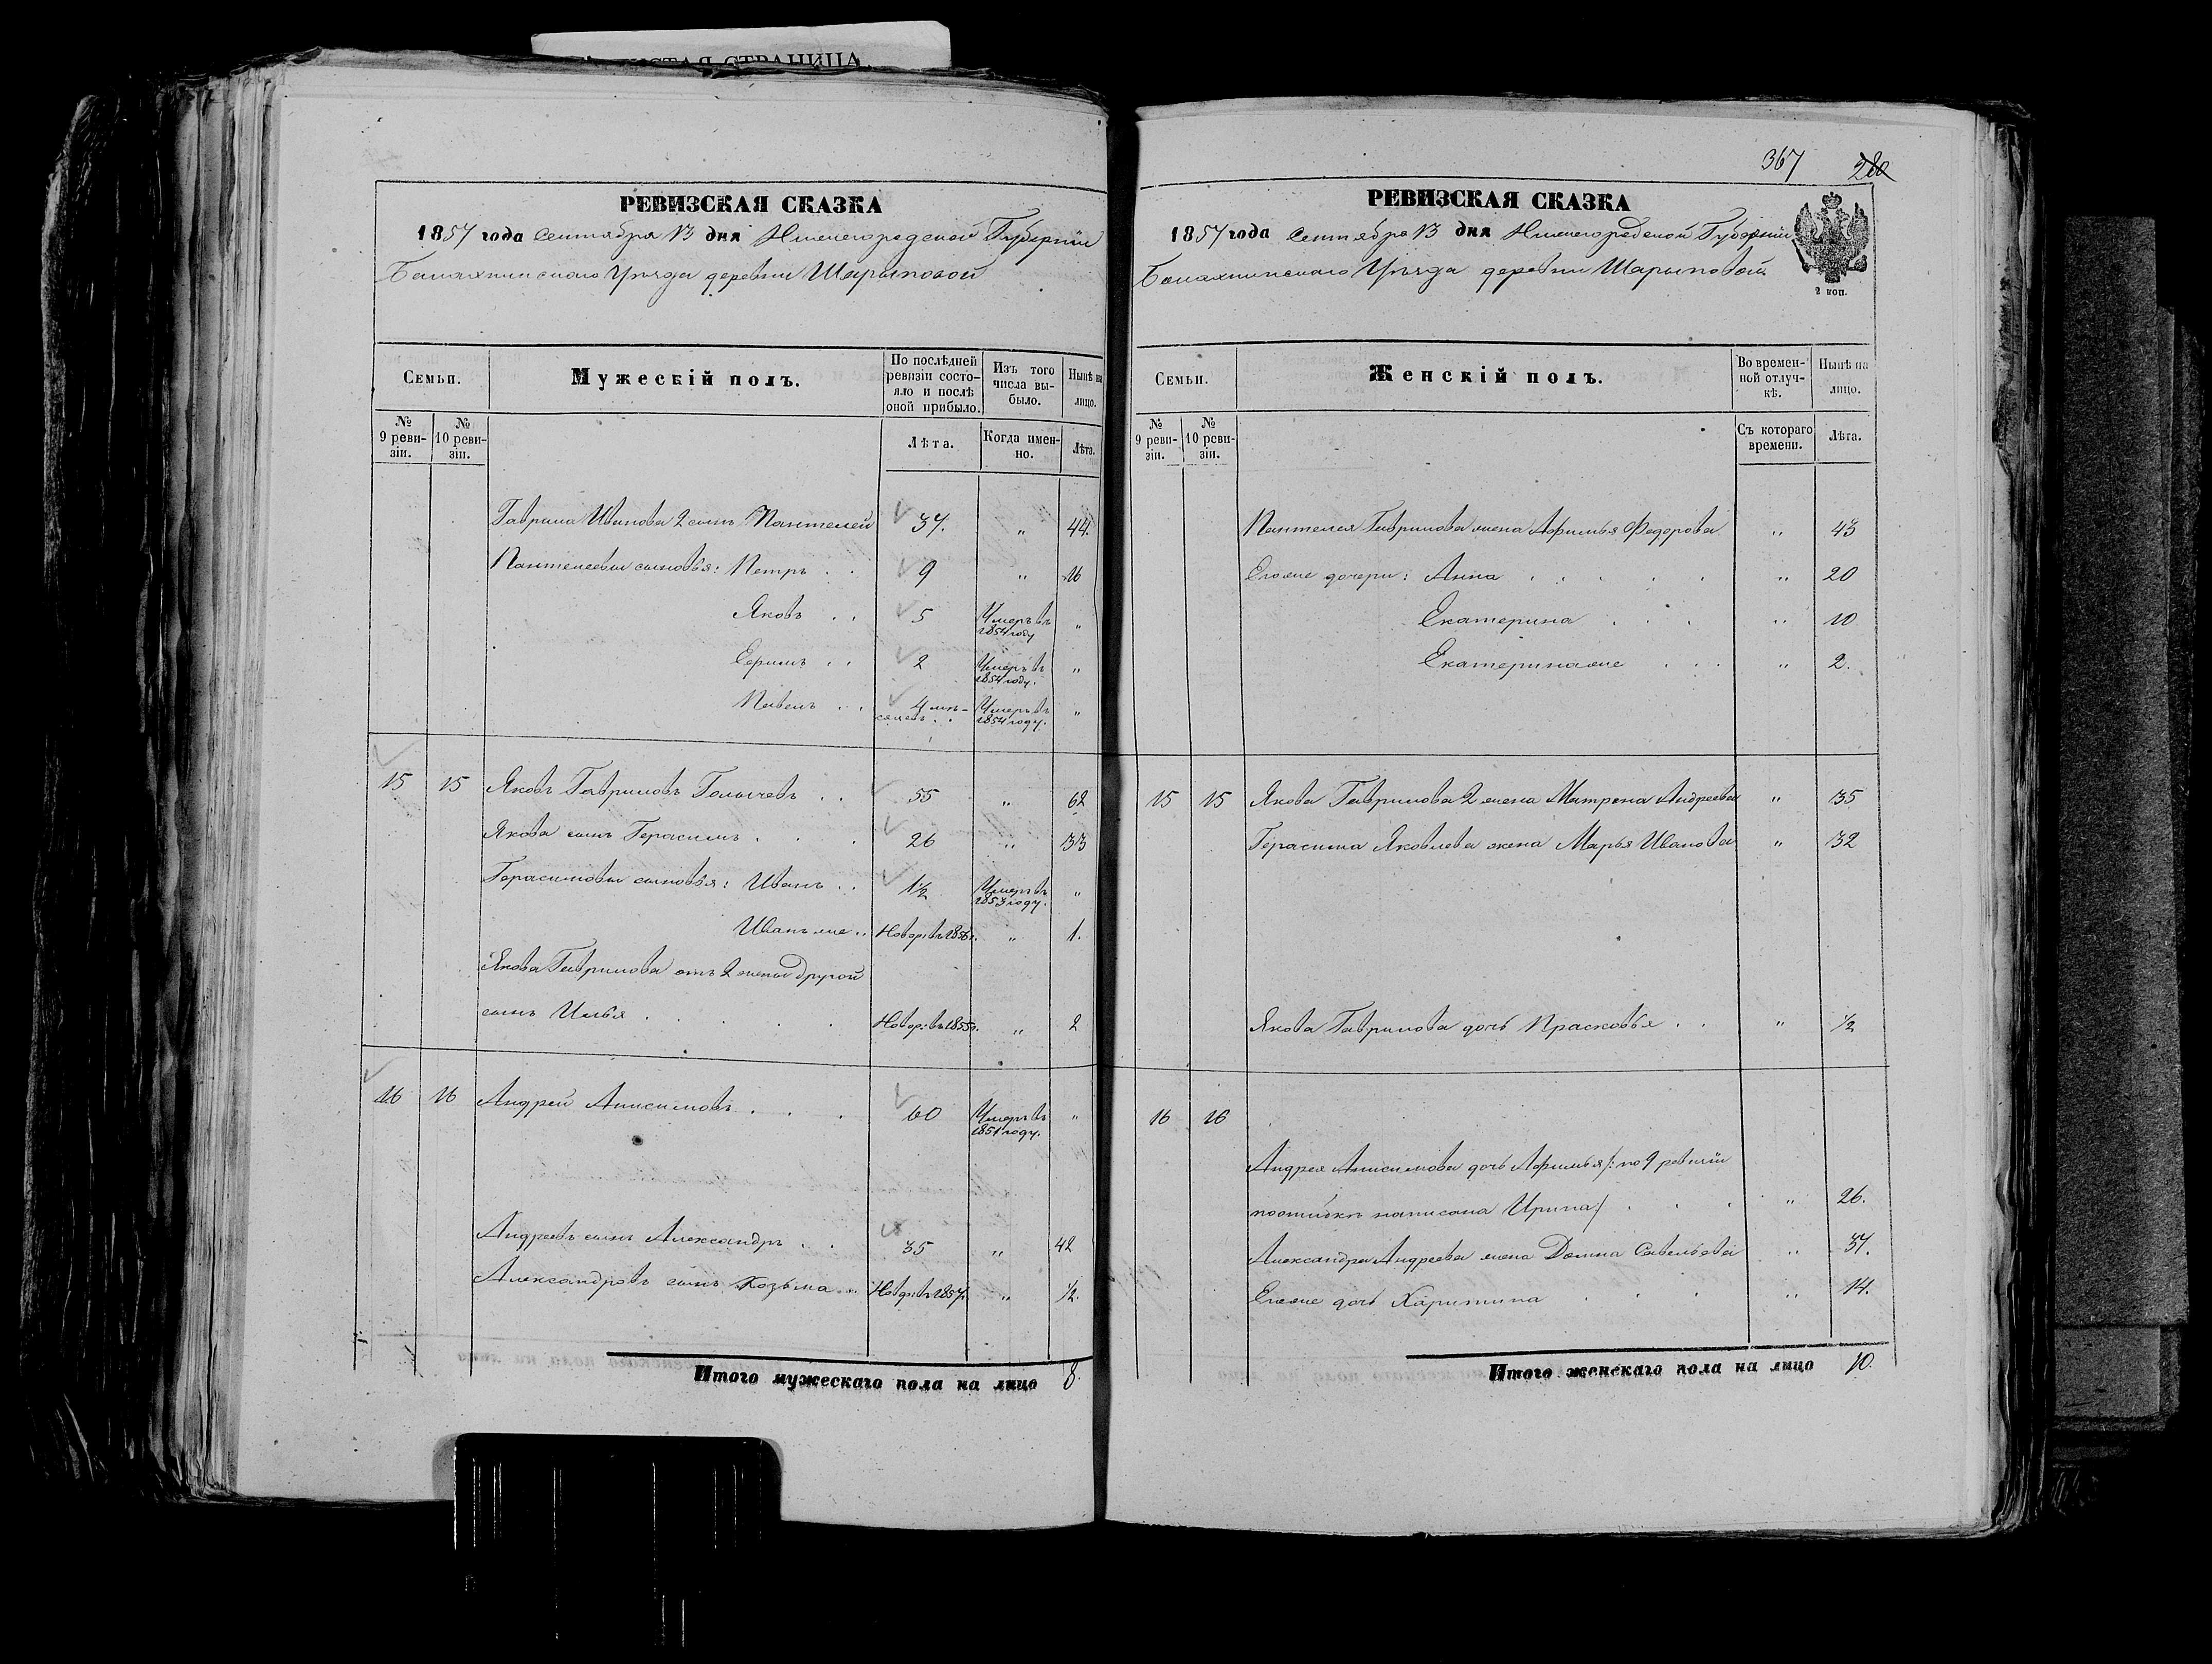 РЕВИЗСКАЯ СКАЗКА
1857 года Сентября 13 дня Нижегородской Губерніи
Балахнинскаго Уѣзда деревни Шарыповой
Семьи.
Мужескій полъ.
По послѣдней ревизіи состояло и послѣ оной прибыло.
Изъ того числа выбыло.
Нынѣ на лицо.
№ 9 ревизіи.
№ 10 ревизіи.
Лѣта.
Когда именно.
Лѣта.
Гаврила Иванова 2 сынъ Пантелей 37. " 44.
Пантелеевы сыновья: Петръ . . 9 " 16
Яковъ . . 5 Умеръ въ 1854 году "
Ефимъ . . 2 Умеръ въ 1854 году. "
Павелъ . . 4 мѣсяцевъ . . Умеръ въ 1854 году. "
15 15 Яковъ Гавриловъ Голычевъ . . 55 " 62
Якова сынъ Герасимъ . . . 26 " 33
Герасимовы сыновья: Иванъ . . 1½ Умеръ въ 1853 году. "
Иванъ же . . Новор: въ 1856 г. " 1.
Якова Гаврилова отъ 2 жены другой
сынъ Илья . . . . . Новор: въ 1855 г. " 2
16 16 Андрей Анисимовъ . . . 60 Умеръ въ 1851 году. "
Андреевъ сынъ Александръ . . 35 " 42
Александровъ сынъ Козьма . . Новор: въ 1857 г. " ½.
Итого мужескаго пола на лицо 8.
367 280
РЕВИЗСКАЯ СКАЗКА
1857 года Сентября 13 дня Нижегородской Губерніи
Балахнинскаго Уѣзда деревни Шарыповой
2 коп.
Семьи.
Женскій полъ.
Во временной отлучкѣ.
Нынѣ на лицо.
№ 9 ревизіи.
№ 10 ревизіи.
Съ котораго времени.
Лѣта.
Пантелея Гаврилова жена Афимья Федорова " 43
Егоже дочери: Анна . . . . . " 20
Екатерина . . . " 10
Екатерина же . . . " 2.
15 15 Якова Гаврилова 2 жена Матрена Андреева " 35
Герасима Яковлева жена Марья Иванова " 32
Якова Гаврилова дочь Прасковья . . " ½
16 16
Андрея Анисимова дочь Афимья /: по 9 ревизіи
поошибкѣ написана Ирина / . . . " 26.
Александра Андреева жена Домна Савельева " 37.
Егоже дочь Харитина . . . . " 14.
Итого женскаго пола на лицо 10.